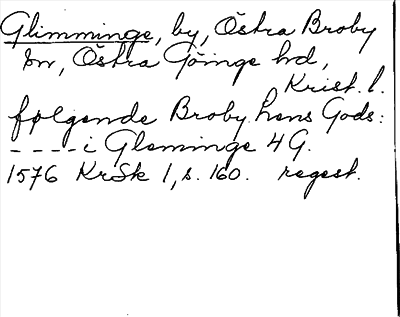 Glimminge, by, Östra Broby
sn, Östra Göinge hd,
Krist. l.
følgende Broby Lens Gods:
----i Gleminge 4 G.
1576 KrSk 1, s. 160. regest.